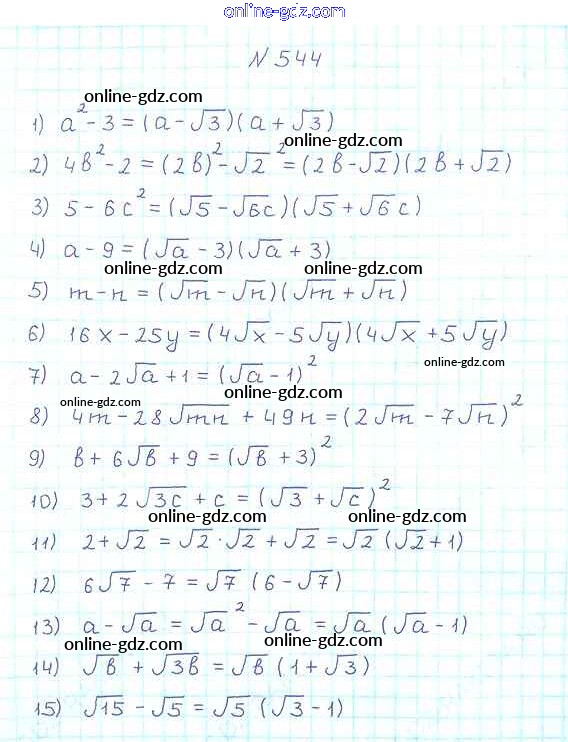 online-gdz.com
№ 544
online-gdz.com
1) a² - 3 = (a - √3)(a + √3)
online-gdz.com
2) 4b² - 2 = (2b)² - √2² = (2b - √2)(2b + √2)
3) 5 - 6c² = (√5 - √6c)(√5 + √6 c)
4) a - 9 = (√a - 3)(√a + 3)
online-gdz.com online-gdz.com
5) m - n = (√m - √n)(√m + √n)
6) 16x - 25y = (4√x - 5√y)(4√x + 5√y)
online-gdz.com
7) a - 2√a + 1 = (√a - 1)²
online-gdz.com online-gdz.com
8) 4m - 28√mn + 49n = (2√m - 7√n)²
9) b + 6√b + 9 = (√b + 3)²
10) 3 + 2√3c + c = (√3 + √c)²
online-gdz.com online-gdz.com
11) 2 + √2 = √2 · √2 + √2 = √2 (√2 + 1)
12) 6√7 - 7 = √7 (6 - √7)
13) a - √a = √a² - √a = √a (√a - 1)
online-gdz.com online-gdz.com
14) √b + √3b = √b (1 + √3)
15) √15 - √5 = √5 (√3 - 1)